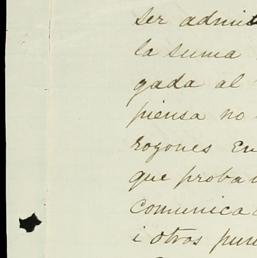 ser admi
la suma
gada al
piensa no
razones en
que proba
comunica
i otros pun